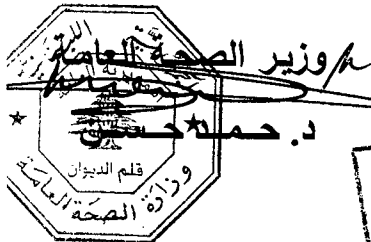 وزير الصحة العامة
د. حمد حسن
قلم الديوان
وزارة الصحة العامة